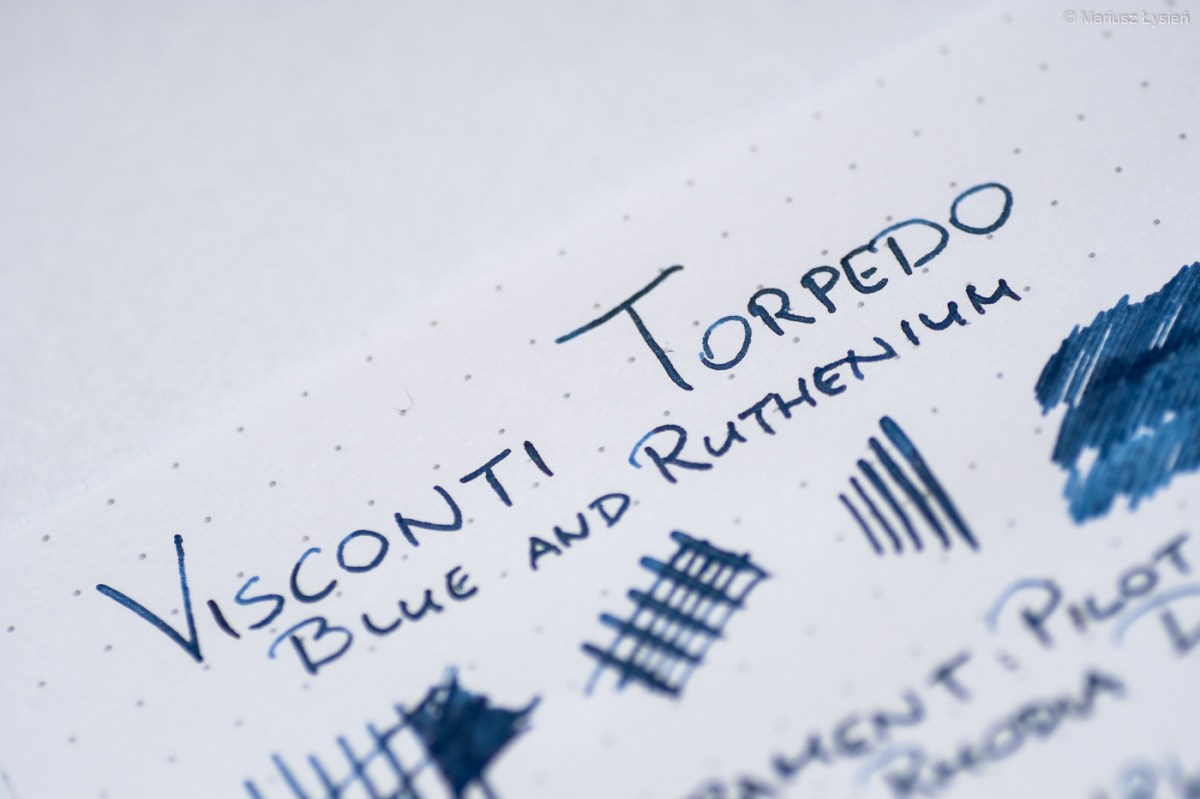 © Mariusz Łysień
VISCONTI TORPEDO
BLUE AND RUTHENIUM
PILOT
RHODIA